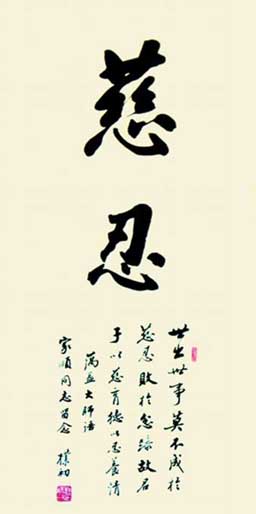 慈忍
世出世事莫不成於
慈忍敗於忿躁故君
子以慈育德以忍養情
蕅益大師語
家順同志留念 樸初